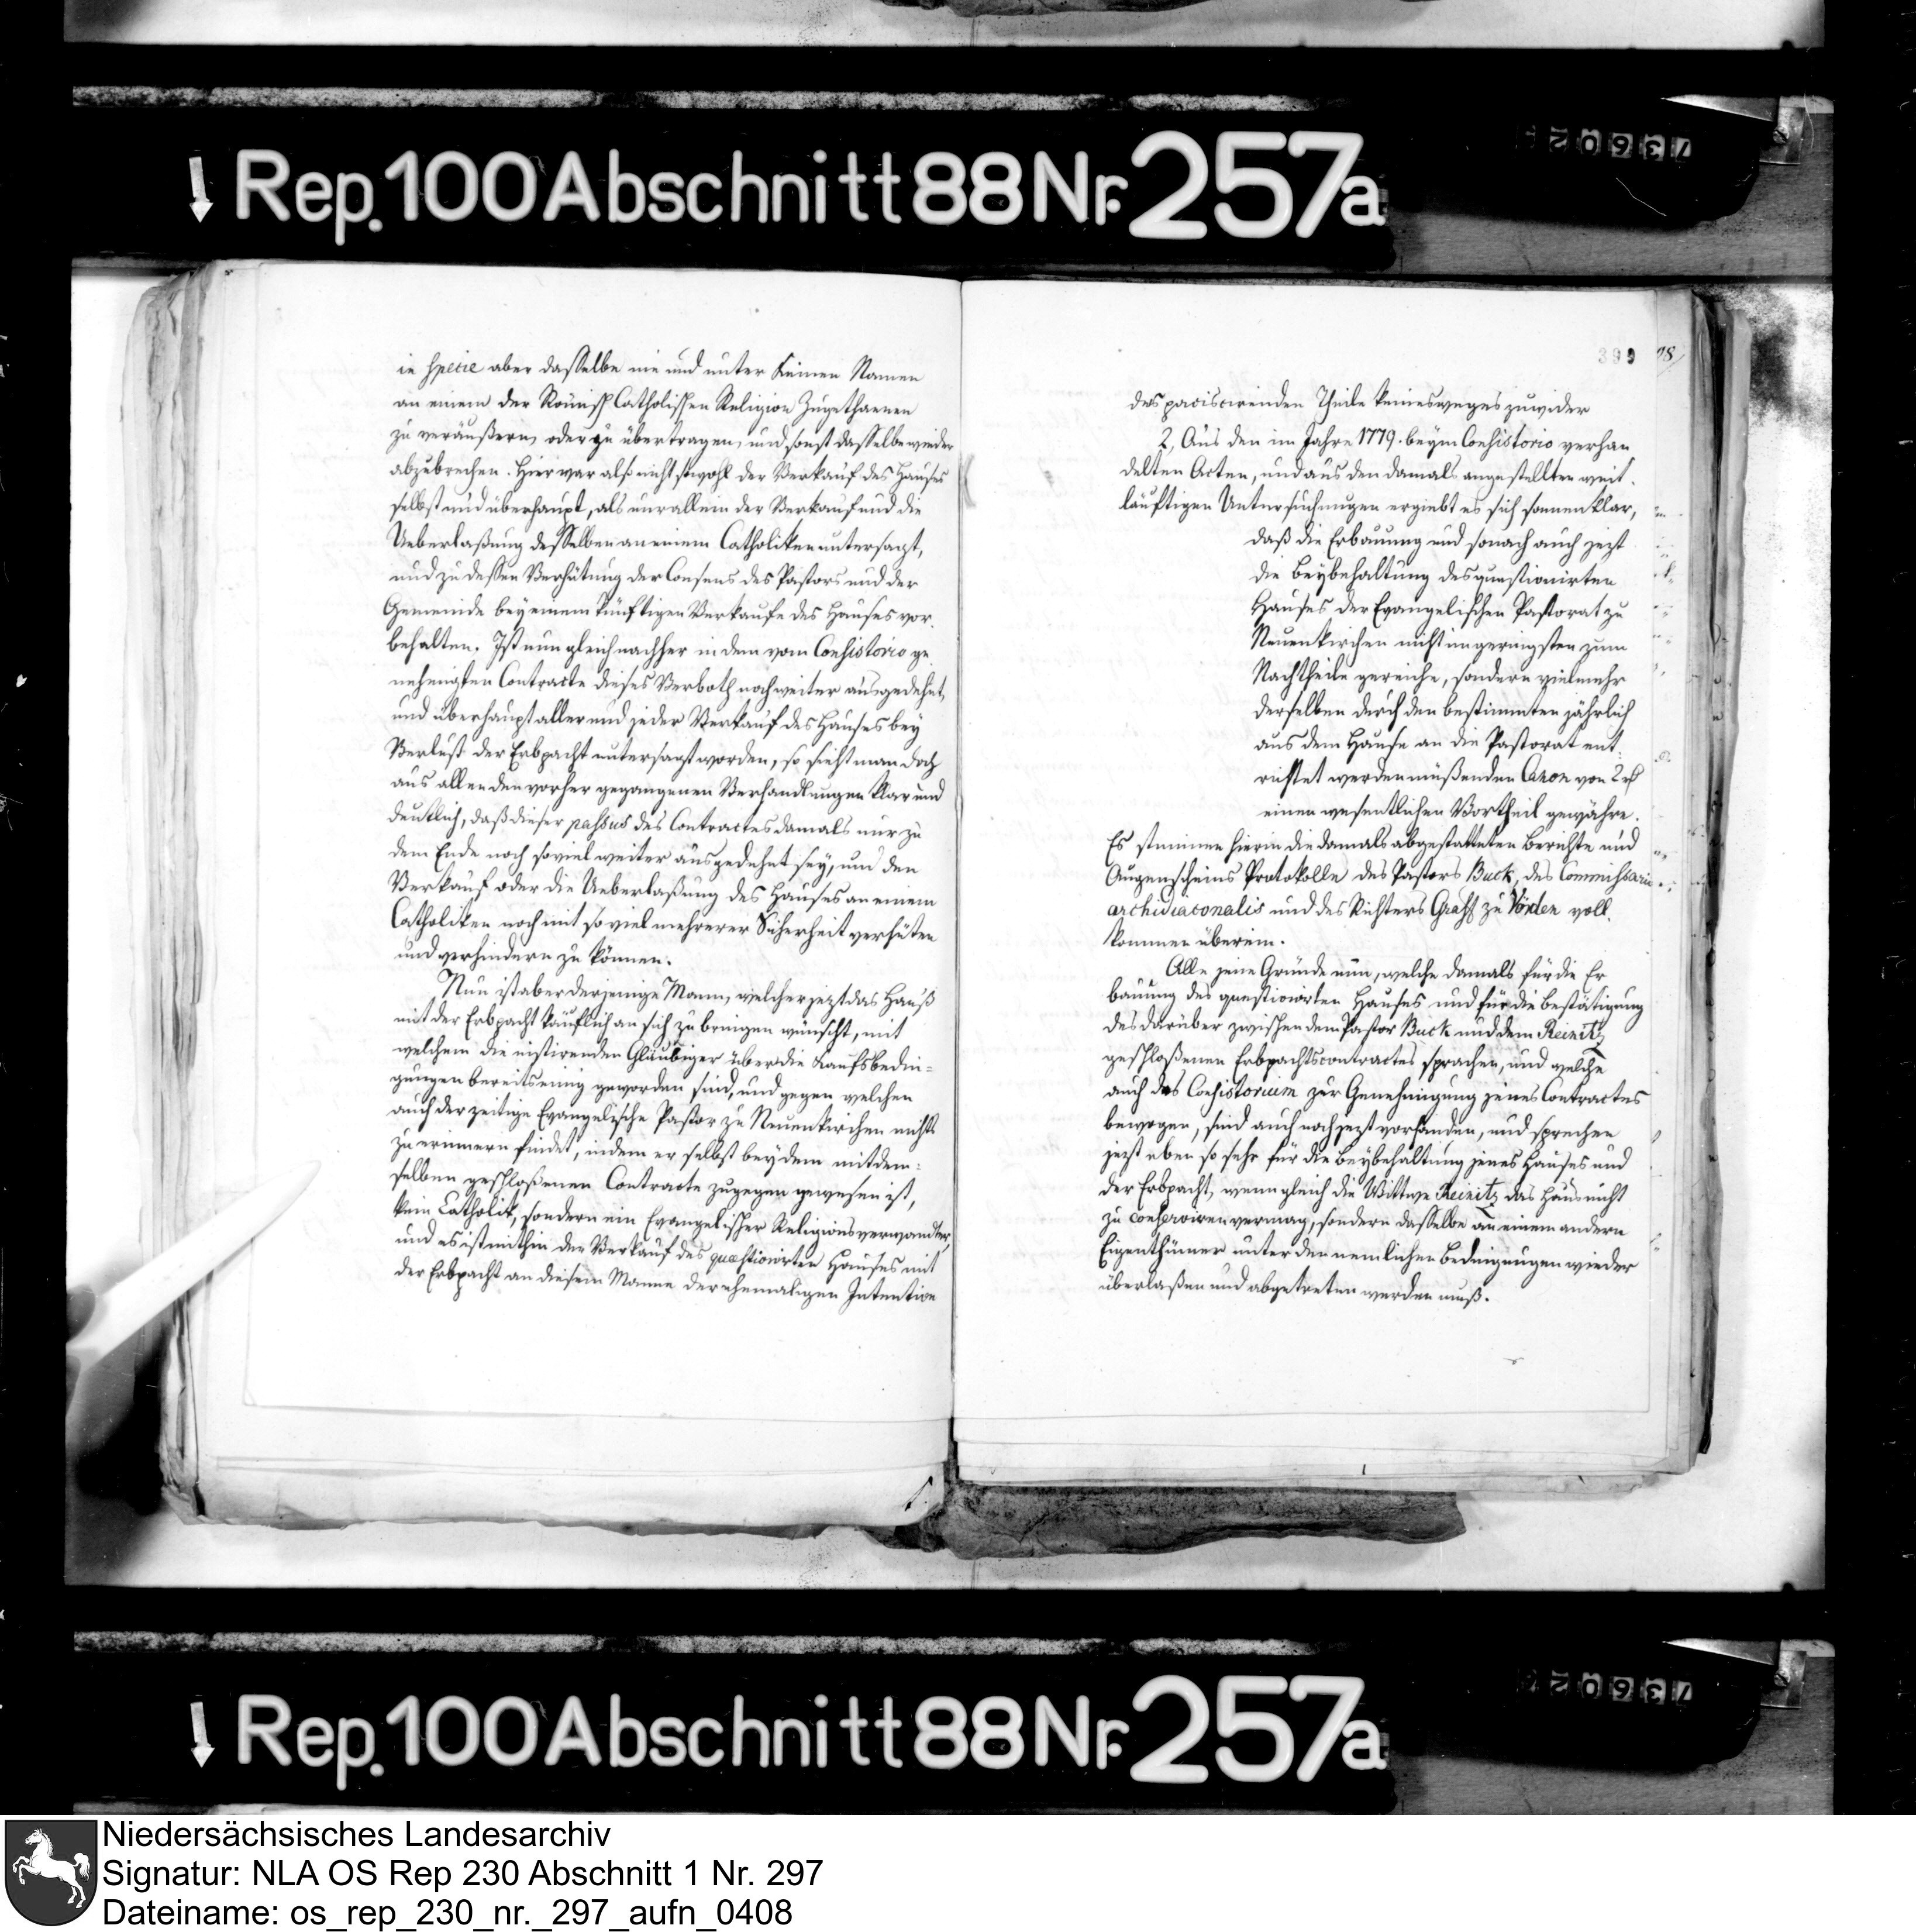 Rep. 100 Abschnitt 88 Nr. 257a
in specie aber dasselbe nie und unter keinen Namen
an einem der Römisch Catholischen Religion Zugethanen
zu veräußern, oder zu übertragen, und sonst dasselbe wieder
abzubrechen. Hier war also nicht sowohl der Verkauf des Hauses
selbst und überhaupt, als nur allein der Verkauf und die
Ueberlaßung desselben an einem Catholiken untersagt,
und zu dessen Verhütung der Consens des Pastors und der
Gemeinde bey einem künftigen Verkaufe des Hauses vor-
behalten. Ist nun gleich nachher in dem vom Consistorio ge
nehmigten Contracte dieses Verboth noch weiter ausgedehnt,
und überhaupt aller und jeder Verkauf des Hauses bey
Verlust der Erbpacht untersagt worden, so sieht man doch
aus allen den vorher gegangenen Verhandlungen klar und
deutlich, daß dieser passus des Contractes damals nur zu
dem Ende noch soviel weiter ausgedehnt sey, um den
Verkauf oder die Ueberlaßung des Hauses an einem
Catholiken noch mit so viel mehrerer Sicherheit verhüten
und verhindern zu können.
Nun ist aber derjenige Mann, welcher jezt das Hauß
mit der Erbpacht käuflich an sich zu bringen wünscht, mit
welchem die Gläubiger über die Kaufsbedin=
gungen bereits einig geworden sind, und gegen welchen
auch der zeitige Evangelische Pastor zu Neuenkirchen nichts
zu erinnern findet, indem er selbst bey dem mit dem=
selben geschloßenen Contracte zugegen gewesen ist,
kein Catholik, sondern ein Evangelischer Religionsverwandter,
und es ist mithin der Verkauf des quaestionirten Hauses mit
der Erbpacht an diesem Manne der ehemaligen Intention
399 98
des paciscirenden Theile keinesweges zuwider
2, Aus den im Jahre 1779. beym Consistorio verhan
delten Acten, und aus den damals angestellten weit-
läuftigen Untersuchungen ergiebt es sich sonnenklar,
daß die Erbauung und sonach auch jezt
die Beybehaltung des quaestionirten
Hauses der Evangelischen Pastorat zu
Neuenkirchen nicht im geringsten zum
Nachtheile gereiche, sondern vielmehr
derselben durch den bestimmten jährlich
aus dem Hause an die Pastorat ent-
richtet werden müßenden Canon von 2
einen wesentlichen Vortheil gewähre.
Es stimmen hierin die damals abgestatteten Berichte und
Augenscheins Protokolle des Pastors Buck, des Commissarii
archidiaconalis und des Richters Graff zu Vörden voll-
kommen überein.
Alle jene Gründe nun, welche damals für die Er
bauung des quaestionirten Hauses und für die Bestätigung
des darüber zwischen dem Pastor Buck und dem Reinitz
geschloßenen Erbpachtscontractes sprachen, und welche
auch das Consistorium zur Genehmigung jenes Contractes
bewogen, sind auch noch jezt vorhanden, und sprechen
jezt eben so sehr für die Beybehaltung jenes Hauses und
der Erbpacht, wenn gleich die Wittwe Reinitz das Haus nicht
zu conserviren vermag, sondern dasselbe an einem andern
Eigenthümer unter den nemlichen Bedingungen wieder
überlaßen und abgetreten werden muß.
Rep. 100 Abschnitt 88 Nr. 257a
Niedersächsisches Landesarchiv
Signatur: NLA OS Rep 230 Abschnitt 1 Nr. 297
Dateiname: os_rep_230_nr._297_aufn_0408